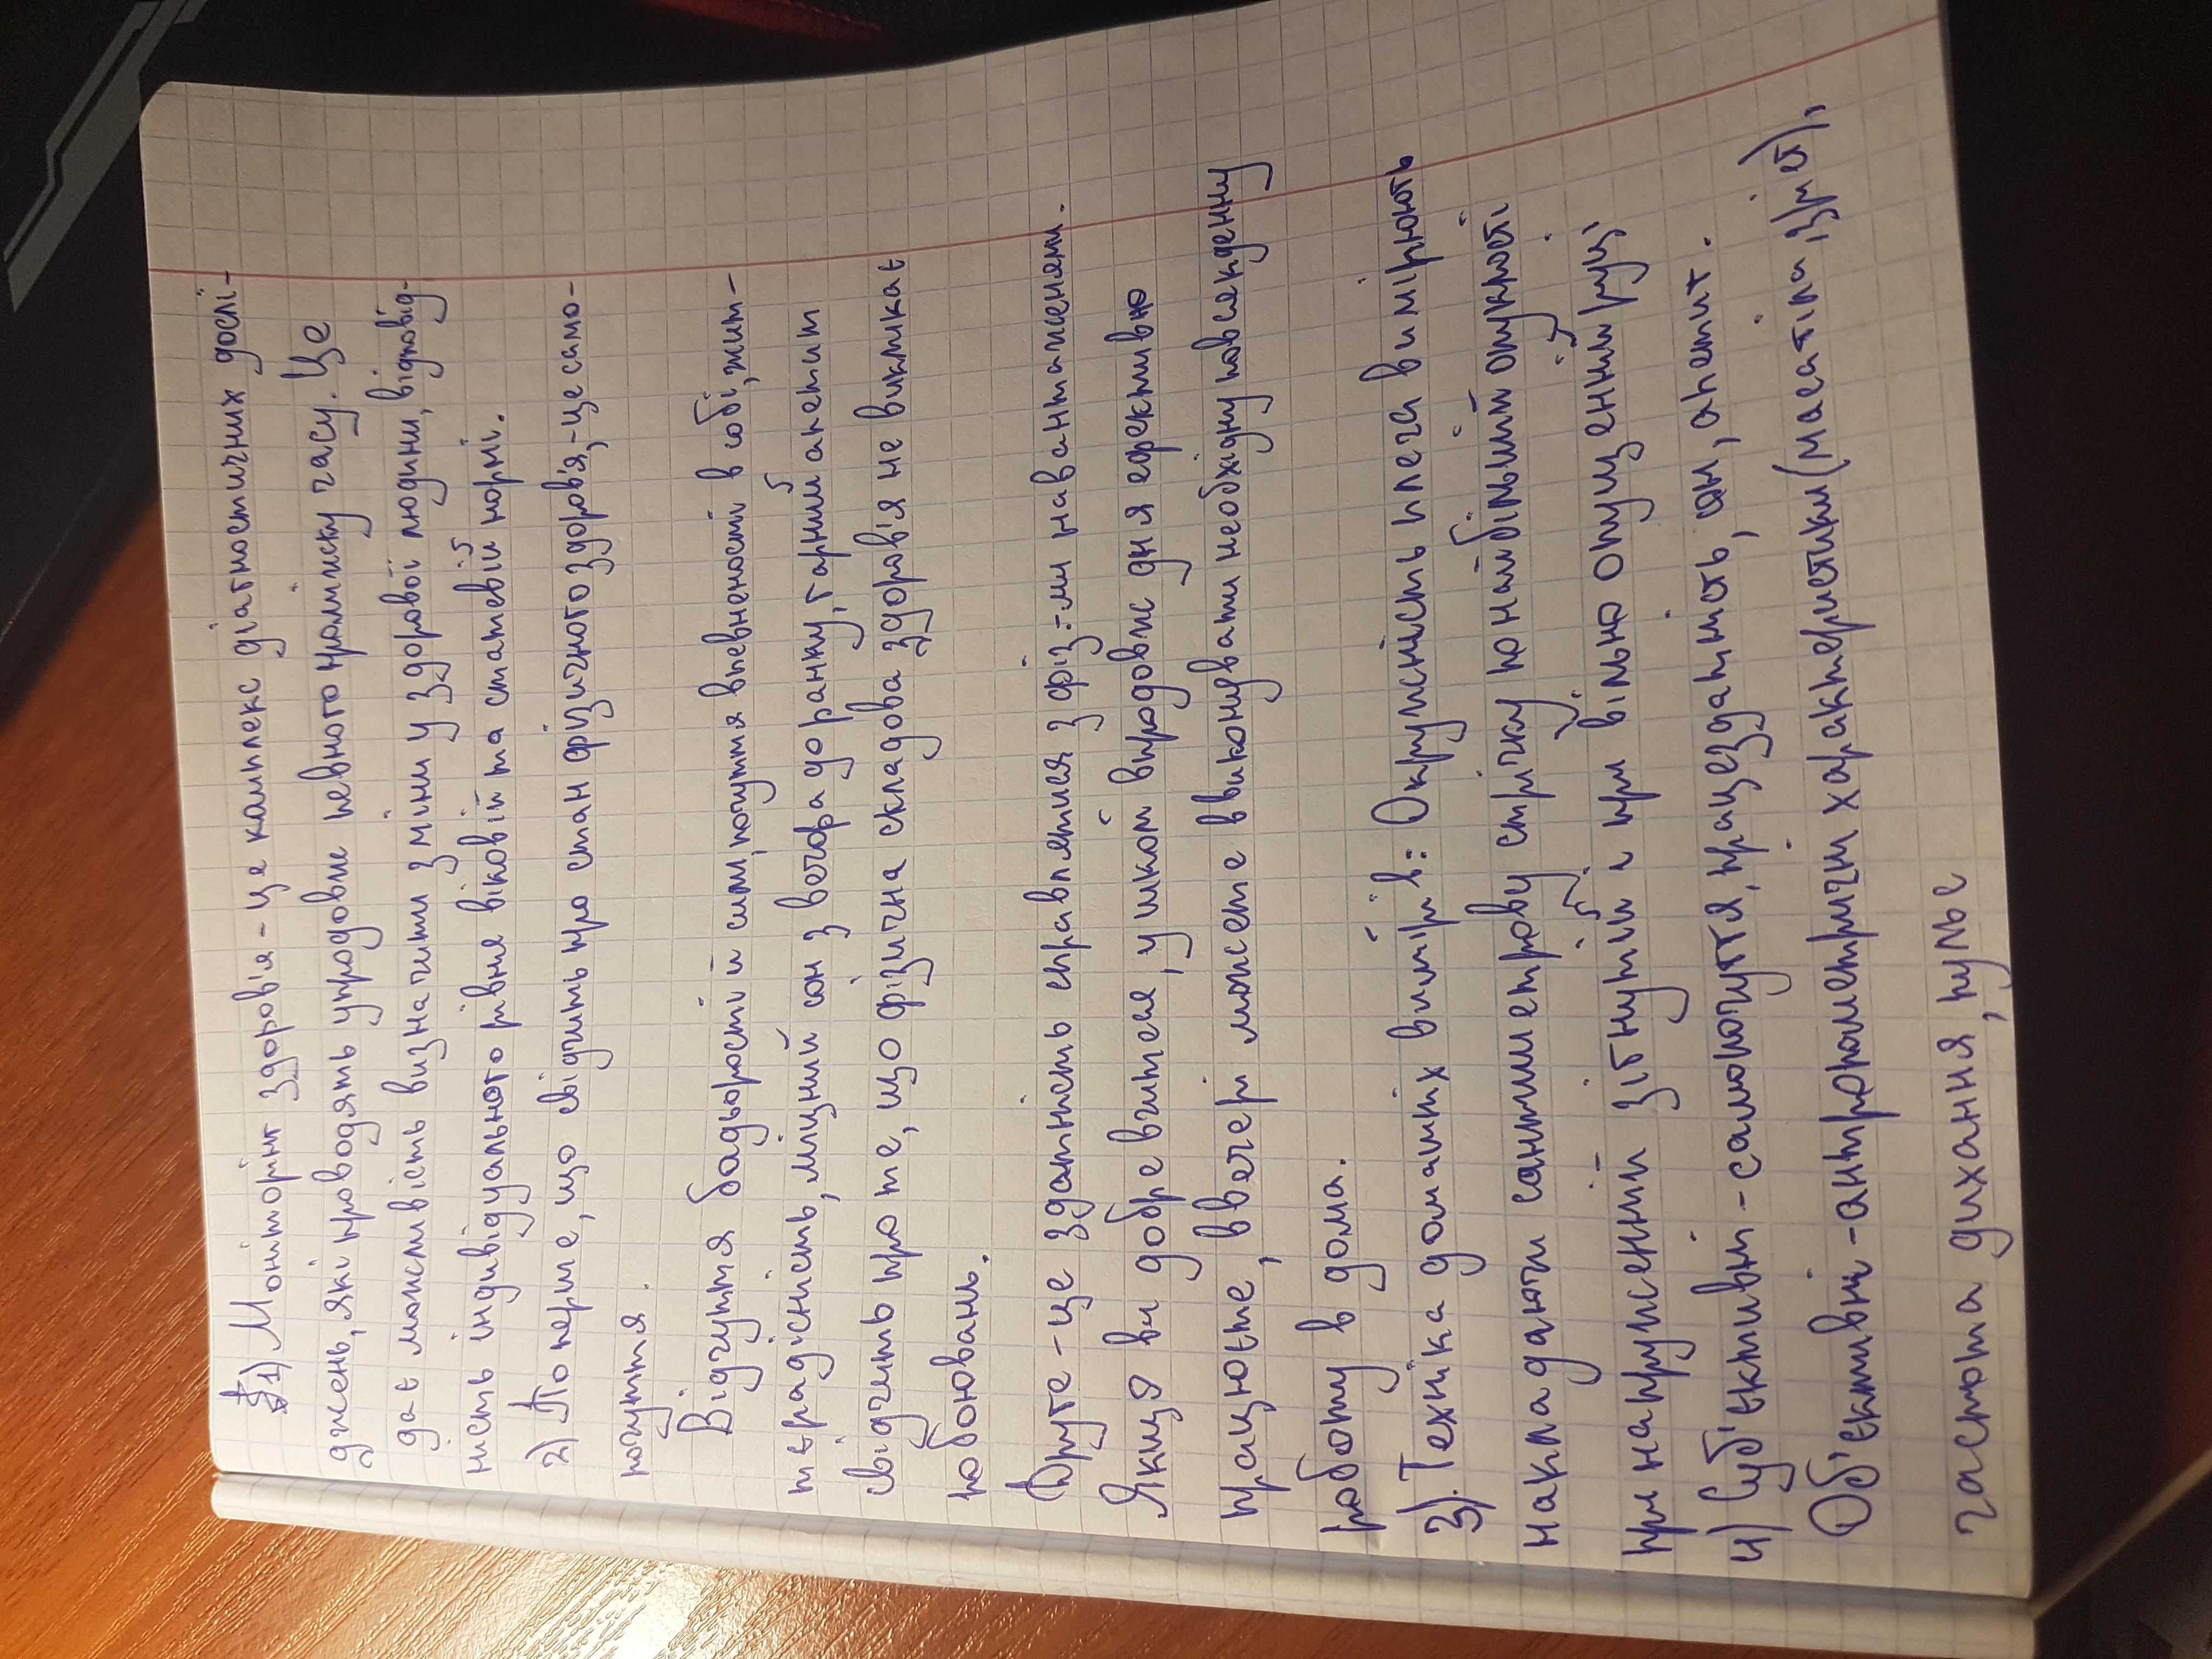 1) Моніторінг здоров'я - це комплекс діагностичних дослі-
джень, які проводять упродовж певного проміжку часу. Це
дає можливість визначити зміни у здорової людини, відповід-
ність індивідуального рівня віковій та статевій нормі.
2) По перше, що свідчить про стан фізичного здоров'я, - це само-
почуття.
Відчуття бадьорості й сил, почуття впевненості в собі, жит-
тєрадісність, міцний сон з вечора до ранку, гарний апетит
свідчить про те, що фізична складова здоров'я не викликає
побоювань.
Друге - це здатність справлятися з фіз-ми навантаженями.
Якщо ви добре вчитеся, у школі впродовж дня ефективно
працюєте, ввечері можете виконувати необхідну повсякденну
роботу в дома.
3). Техніка домашніх вимірів: Окружність плеча вимірюють
накладаючи сантиметрову стрічку по найбільшій опуклості
при напруженній зігнутій і при вільно опущенній руці
4) Суб'єктивні - самопочуття, працездатність, сон, апетит.
Об'єктивні - антропометричні характеристики (маса тіла, зріст),
частота дихання, пульс